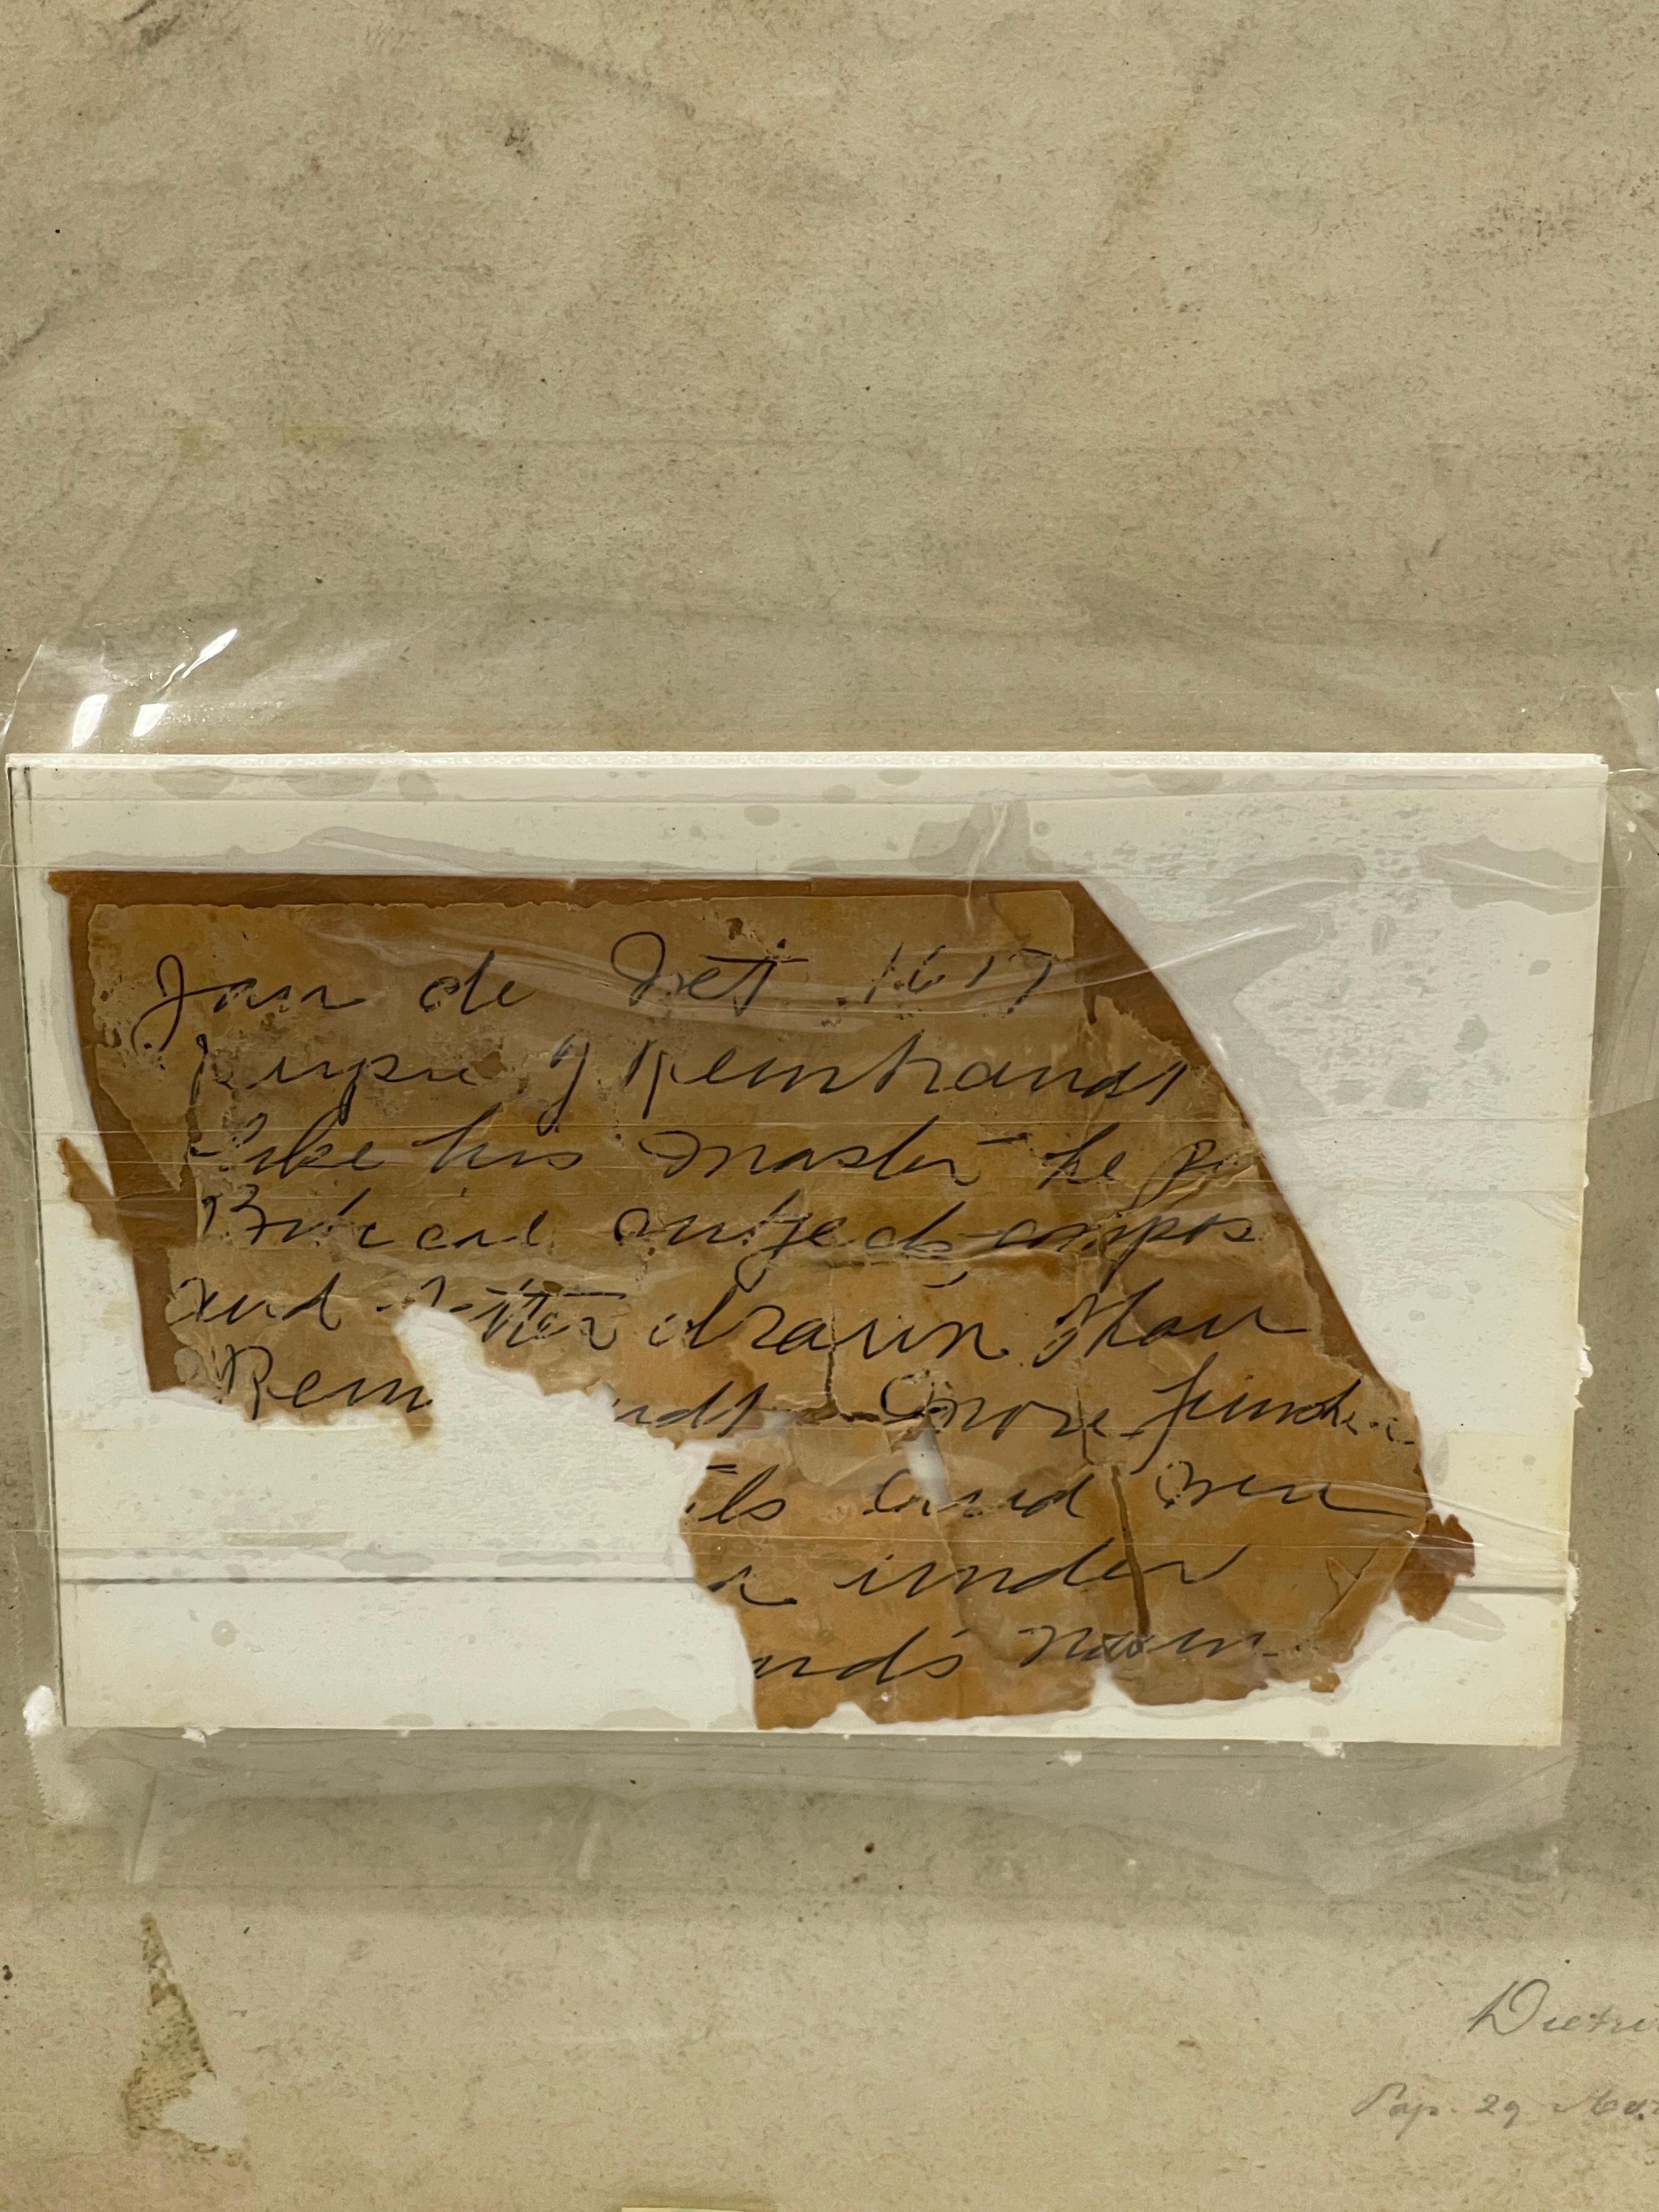 Jan de Vet 1617
Pupil of Rembrandt
Like his master he
Biblical subjects compos
and better drawn than
Rem ndt more finishe
ils and
under
nds
Dietri
Pap. 29